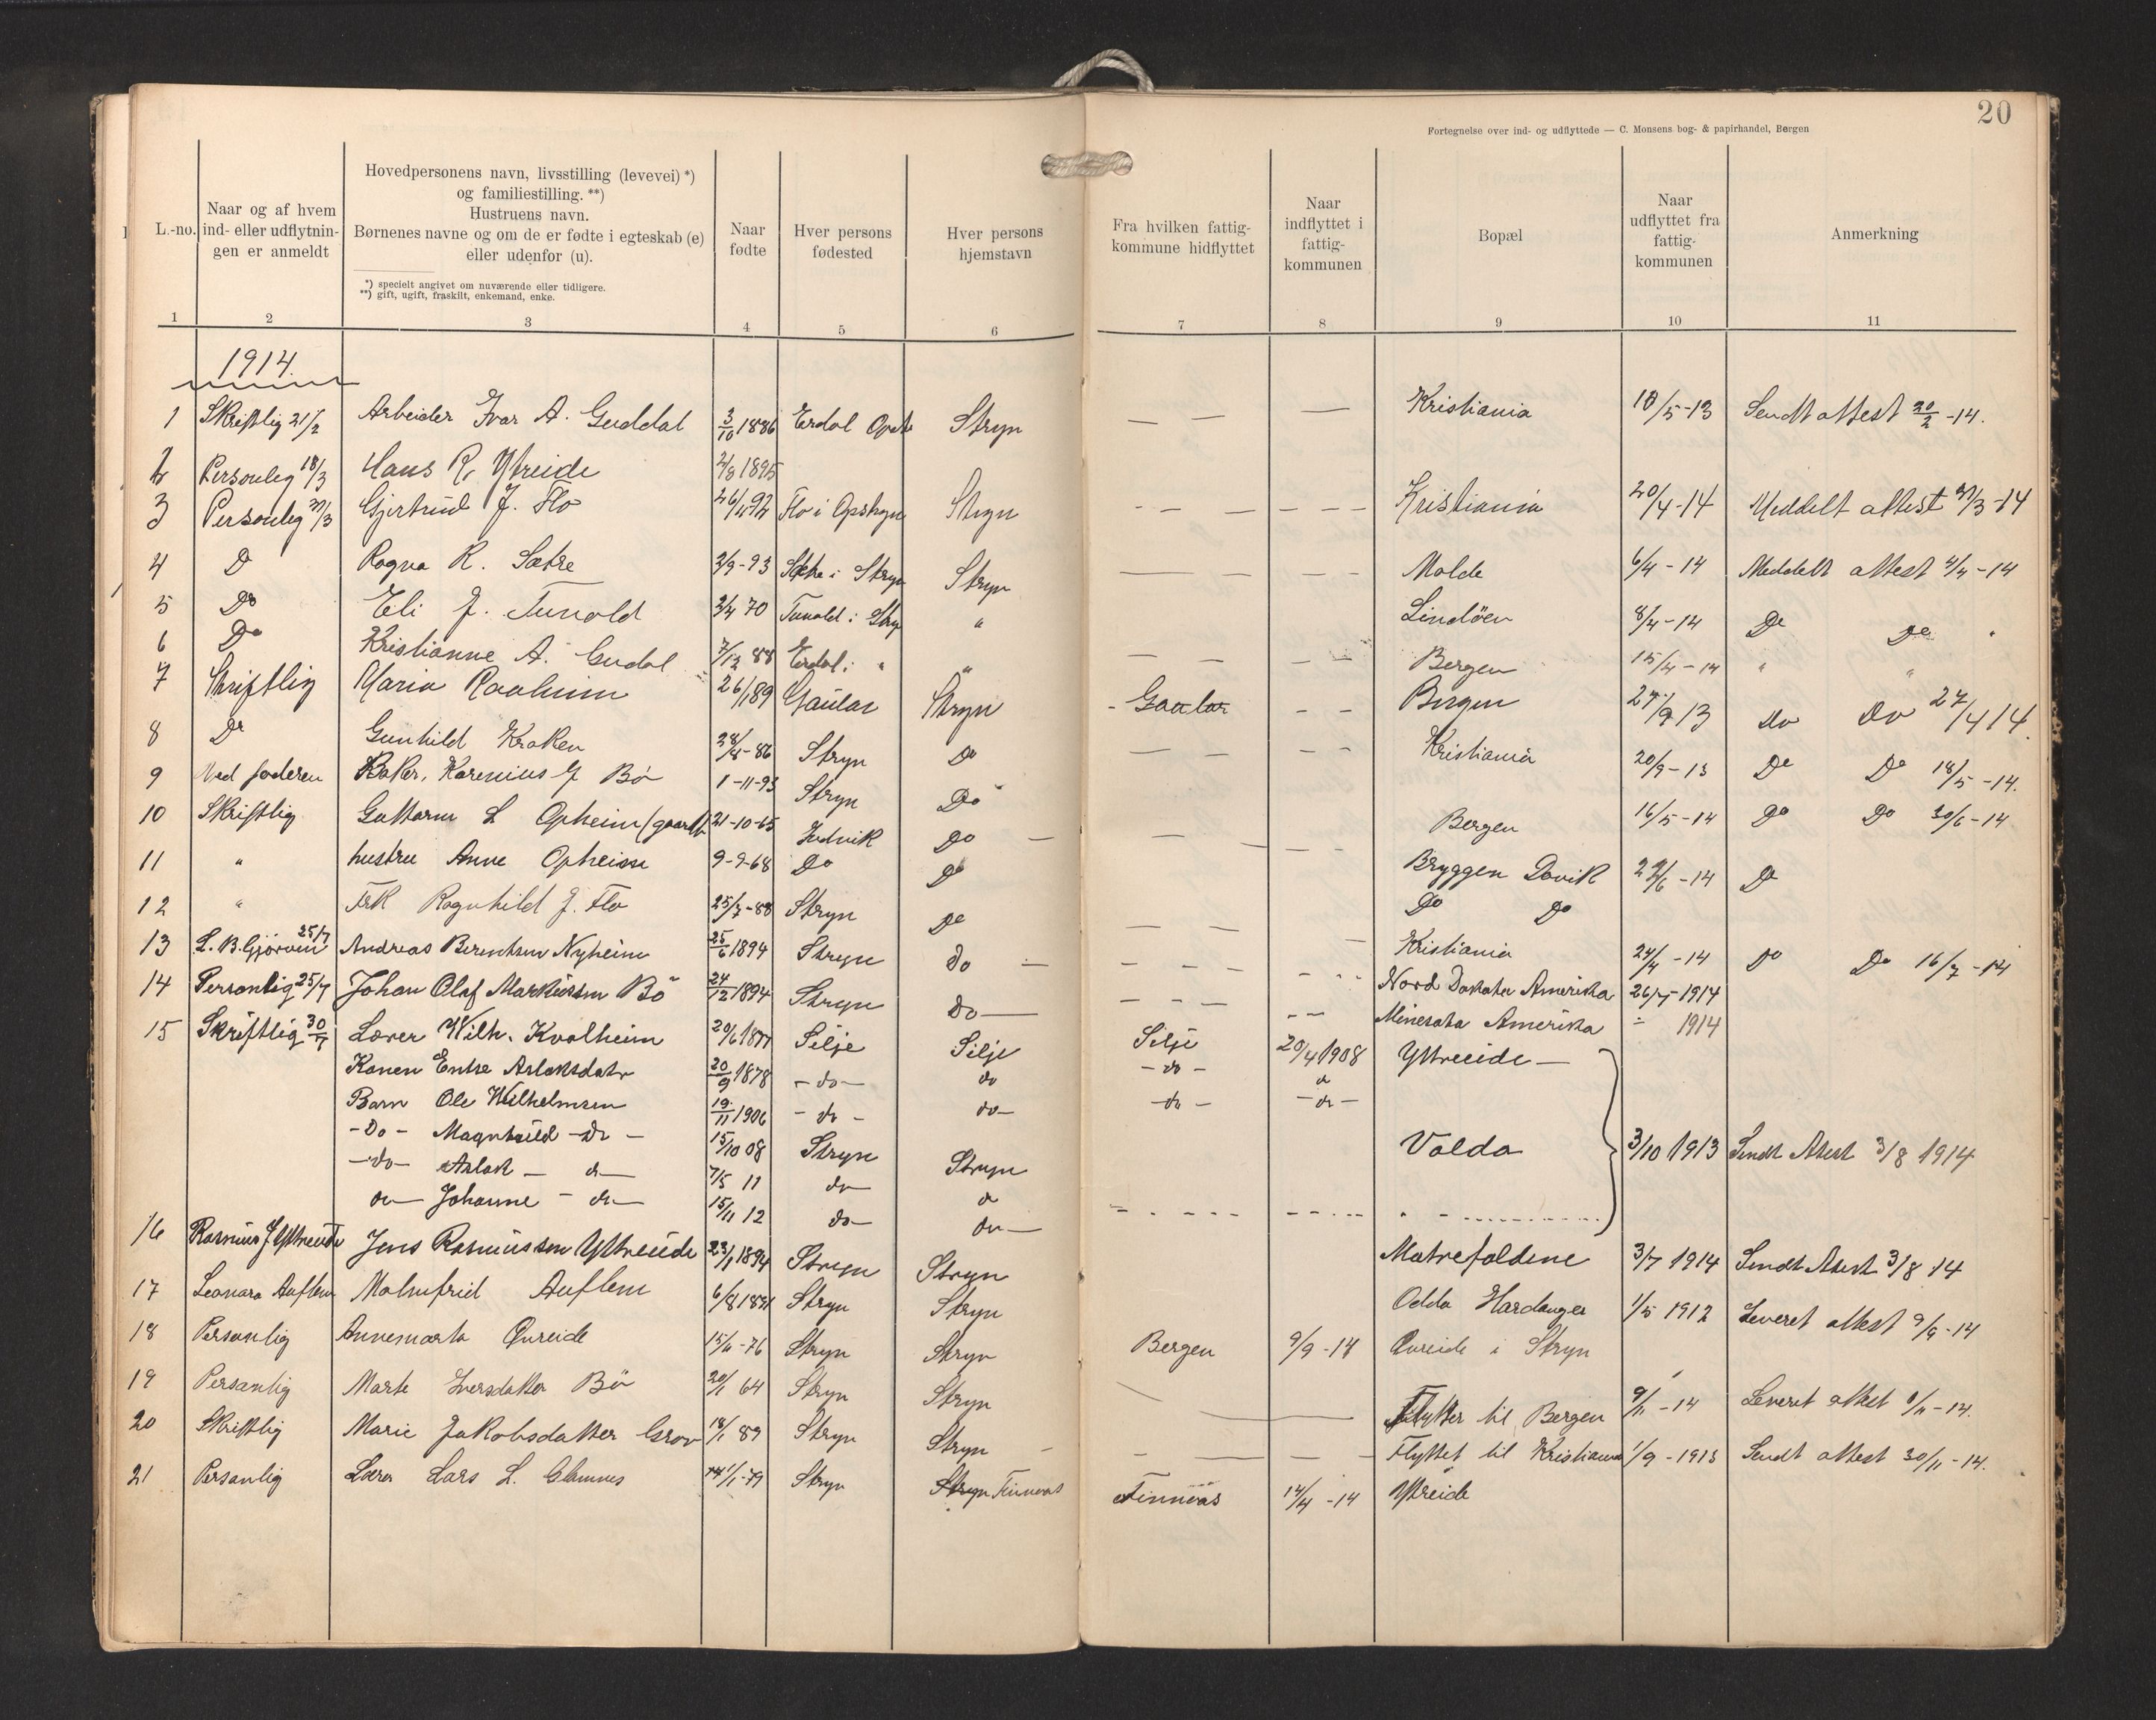 20
Fortegnelse over ind- og udflyttede — C. Monsens bog- & papirhandel, Bergen
L.-no.
Naar og af hvem
ind- eller udflytnin-
gen er anmeldt
Hovedpersonens navn, livsstilling (levevei) *)
og familiestilling. **)
Hustruens navn.
Børnenes navne og om de er fødte i egteskab (e)
eller udenfor (u).
*) specielt angivet om nuværende eller tidligere.
**) gift, ugift, fraskilt, enkemand, enke.
Naar
fødte
Hver persons
fødested
Hver persons
hjemstavn
Fra hvilken fattig-
kommune hidflyttet
Naar
indflyttet i
fattig-
kommunen
Bopæl
Naar
udflyttet fra
fattig-
kommunen
Anmerkning
1 2 3 4 5 6 7 8 9 10 11
1914.
1 Skriftlig 21/2 Arbeider Ivar A. Guddal 3/10 1886 Erdal Stryn — — — Kristiania 10/5-13 Sendt attest 20/2-14.
2 Personleg 18/3 Hans R. Ytreide 2/8 1895
3 Personleg Gjertrud J. Flo 26/11 92 Flo i Opstryn Stryn - - — — - - Kristiania 20/4-14 Meddelt attest /3-14
4 Do Ragna R. Sætre 2/9-93 Sætre i Stryn Stryn — — — - Molde 6/4-14 Meddelt attest 4/4-14
5 Do Eli J. Tunold 70 Tunold i Stry " Lindöen 8/4-14 Do Do "
6 Do Kristianne A. Gudal 7/12 88 Erdal i " " — — - - Bergen 15/4-14 " "
7 Skriftlig Maria Raaheim 26/1 89 Gaular Stryn - Gaular - - Bergen 27/9 13 do do 27/4 14.
8 Do Gunhild Kroken 28/4-86 Stryn Do — — - - Kristiania 20/9-13 Do Do 18/5-14.
9 Ved faderen Baker, Karenius J Bö 1-11-93 Stryn Do Bergen 16/5-14 Do Do 30/6-14
10 Skriftlig Guttorm L Opheim (gaardb 21-10-65 Indvik Do — — — - - Bryggen Davik 22/6-14 Do
11 " hustru Anne Opheim 9-9-68 Do Do Do Do
12 " Frk Ragnhild J. Flo 25/7-88 Stryn Do — — - Kristiania 24/4-14 Do Do 16/7-14
13 L. B. Gjörven 25/7 Andreas Berentsen Nyheim 25/6 1894 Stryn do — - - - - Nord Dakota Amerika 26/7-1914
14 Personlig 25/7 Johan Olaf Markussen Bö 24/12 1894 Stryn do — - - - Minesota Amerika - 1914
15 Skriftlig 30/7 Lærer Wilh. Kvalheim 20/6 1877 Silje Silje Silje 20/4 1908 Ytreeide —
Konen Entse Aslaksdatr 20/9 1878 - do - do - do - do
Barn Ole Wilhelmsen 19/11 1906 - do - do - do - - do -
- Do - Magnhild - do - 15/10 08 Stryn Stryn Volda 3/10 1913 Sendt Atest 3/8 1914
- do - Aslak - do - 7/5 11 do do
do - Johanne - do - 15/11 12 do do
16 Rasmus J Ytreeide Jens Rasmussen Ytreeide 23/1 1894 Stryn Stryn Matrefaldene 3/7 1914 Sendt Atest 3/8 14
17 Leonard Auflem Malmfrid Auflem 6/8 1891 Stryn Stryn Odda Hardanger 1/5 1912 Leveret attest 9/9-14
18 Personlig Annemarta Qvreide 15/6-76 Stryn Stryn Bergen 9/9-14 Qvreide i Stryn
19 Personlig Marte Iversdatter Bö 20/1 64 Stryn Stryn Flytter til Bergen 9/11-14 Leveret attest 9/11-14.
20 Skriftlig Marie Jakobsdatter Grov 18/1 89 Stryn Stryn - - — — Flyttet til Kristiania 1/9-1913 Sendt attest 30/11-14.
21 Personlig Lærer Lars L. Glomnes /1-79 Stryn Stryn Finnvas Finnaas 14/4-14 Ytreide